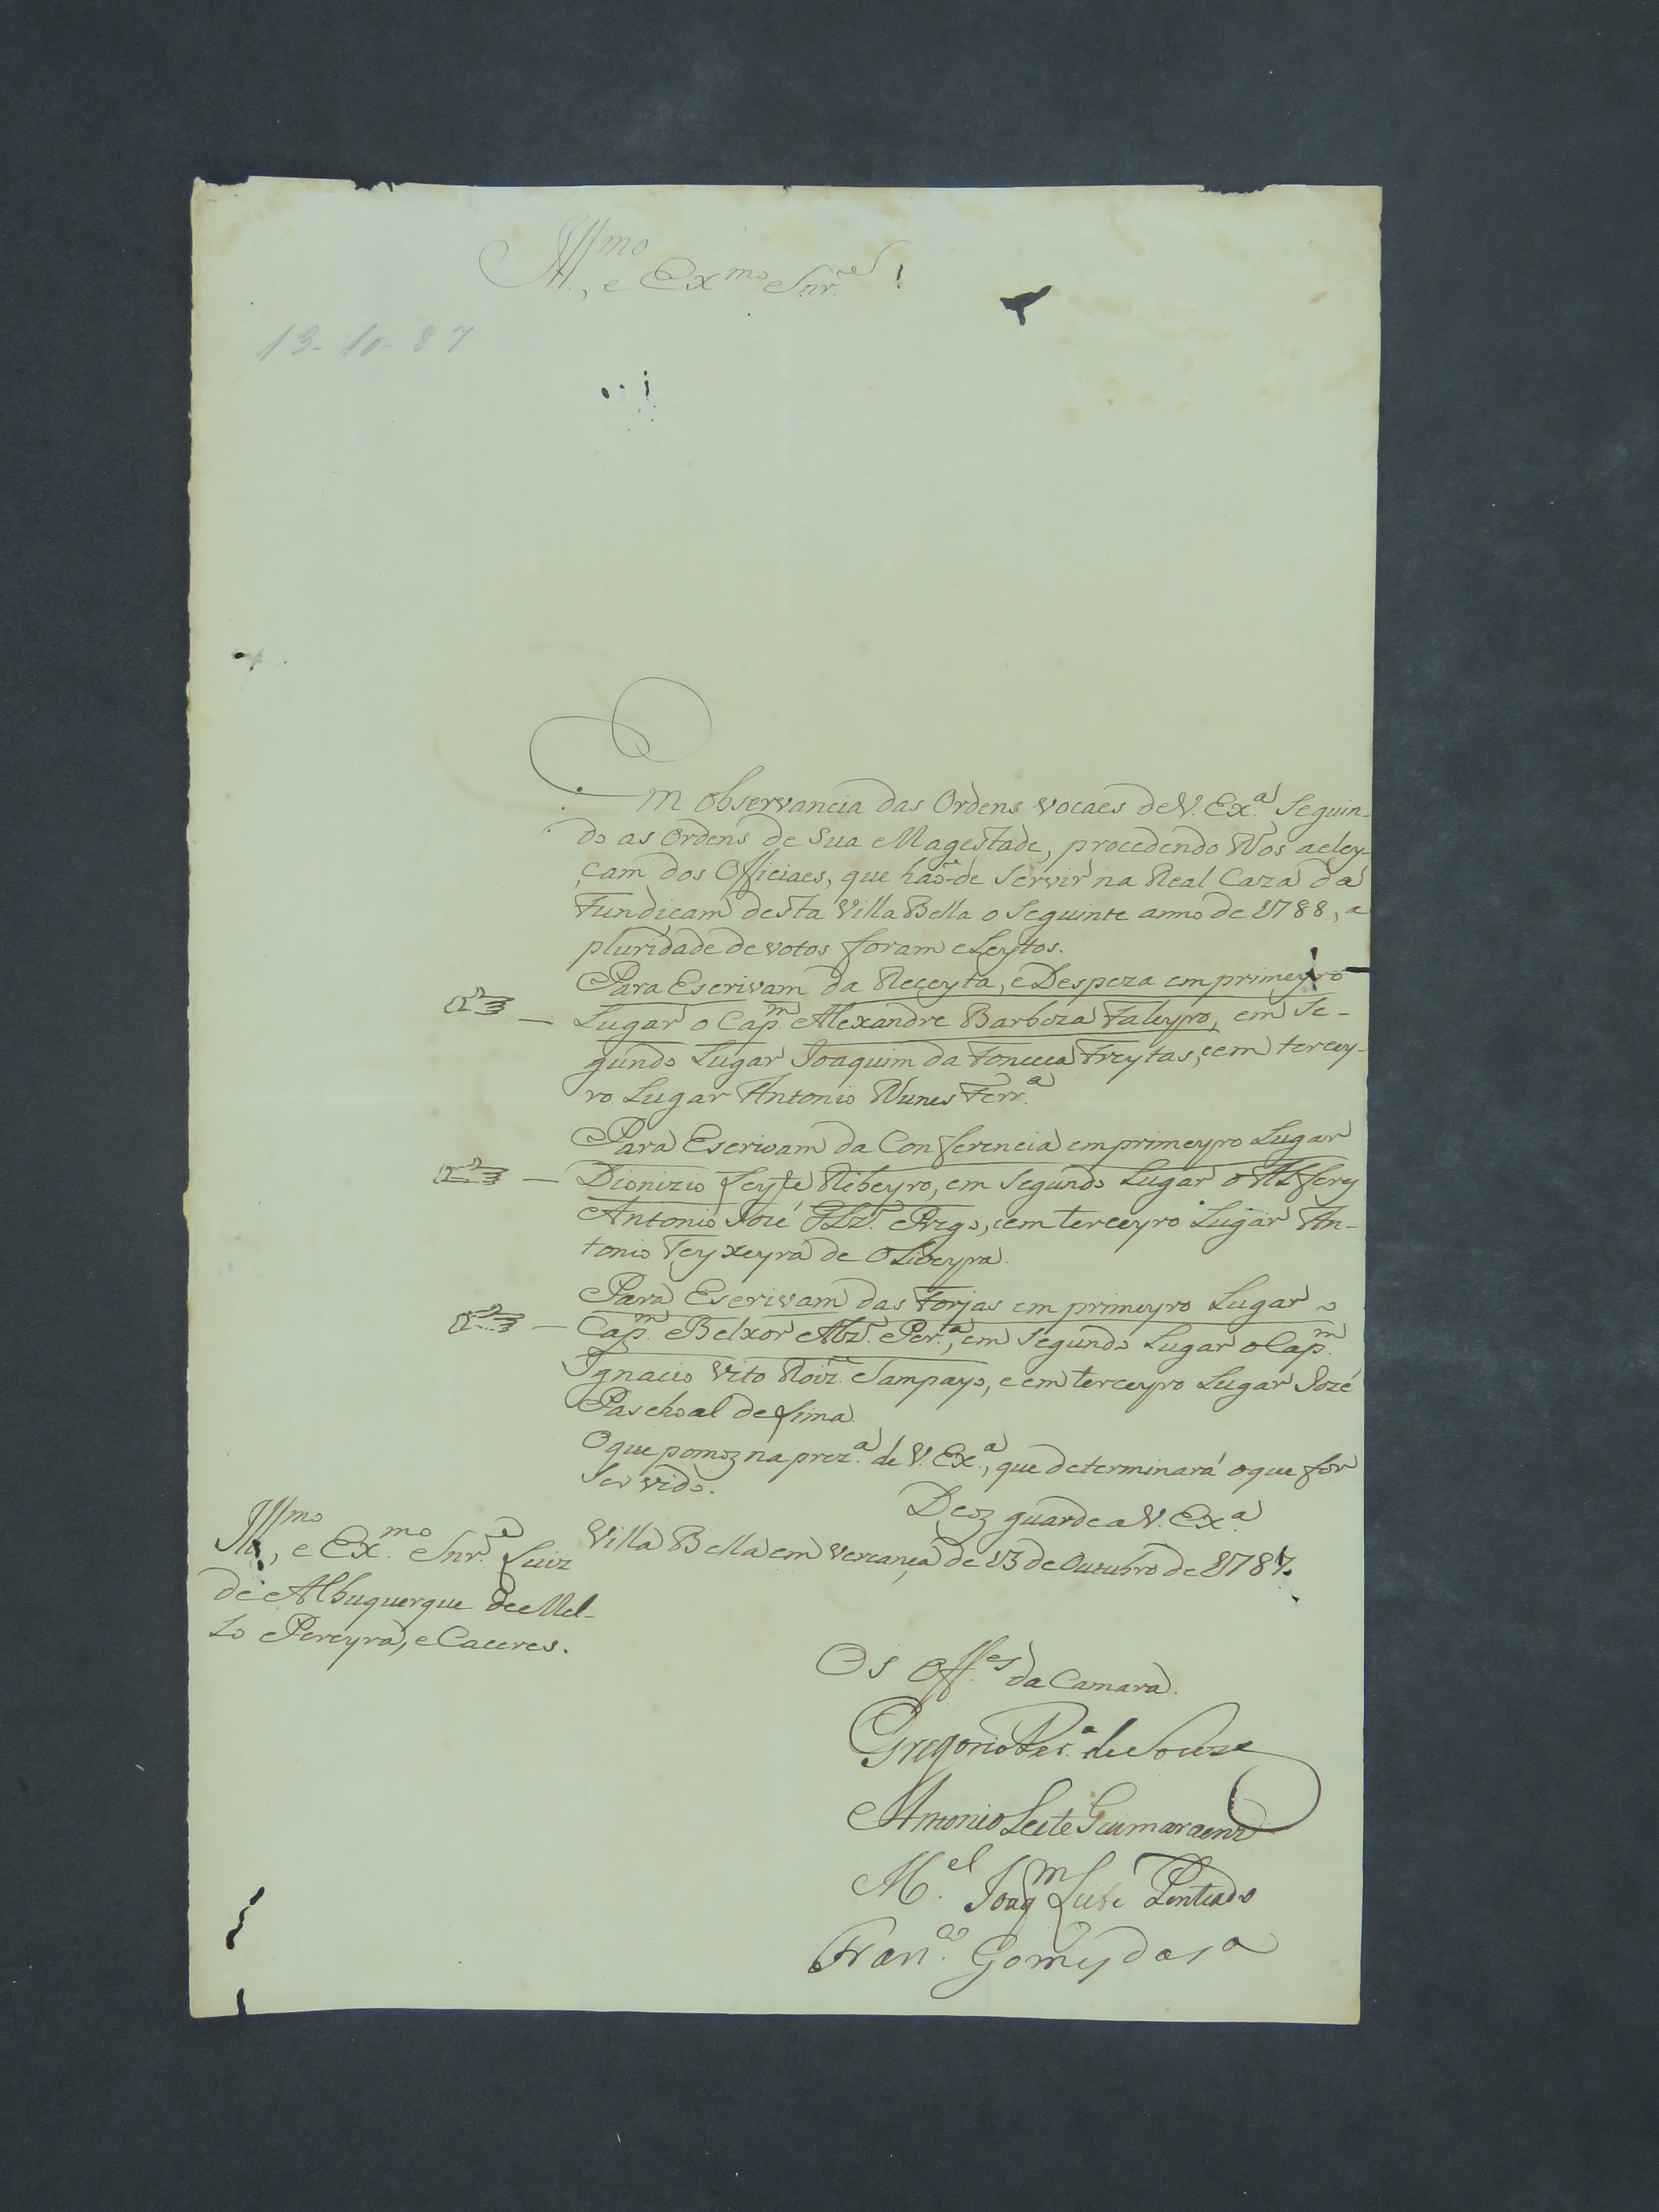 Ill.mo, e Ex.mo Snr.e
13-10-87
Em observancia das Ordens vocaes de V. Ex.a Seguin-
do as Ordens de Sua Magestade, procedendo Nós a eley-
çam dos Officiaes, que haõ-de Servir na Real Caza da
Fundiçam desta Villa Bella o Seguinte anno de 1788, a
pluridade de votos foram eLeytos.
Para Escrivam da Receyta, e Despeza em primeyro
Lugar o Cap.m Alexandre Barboza Faleyro, em Se-
gundo Lugar Joaquim da Fonceca Freytas, e em tercey-
ro Lugar Antonio Nunes Ferr.a
Para Escrivam da Conferencia em primeyro Lugar
Dionizio Leyte Ribeyro, em Segundo Lugar o ALferes
Antonio Jozé Glz.' , e em terceyro Lugar An-
tonio Teyxeyra de OLiveyra.
Para Escrivam das Forjas em primeyro Lugar o
Cap.m Belxor Alz.' Per.a, em Segundo Lugar o Cap.m
Ignacio Vito Roiz.' Sampayo, e em terceyro Lugar Jozé
Paschoal de Lima.
O que pomoz na prez.a de V. Ex.a, que determinará o que for
Servido.
Deoz guarde a V. Ex.a
Villa Bella em vereança de 13 de Outubro de 1787.
Ill.mo, e Ex.mo Snr.e Luiz
de Albuquerque de Mel-
Lo Pereyra, e Caceres.
Os Off.es da Camara.
Gregorio Per.a de Souza
Antonio Leite Guimaraens
M.el Joaq.m Leite Penteado
Fran.co Gomes da S.a